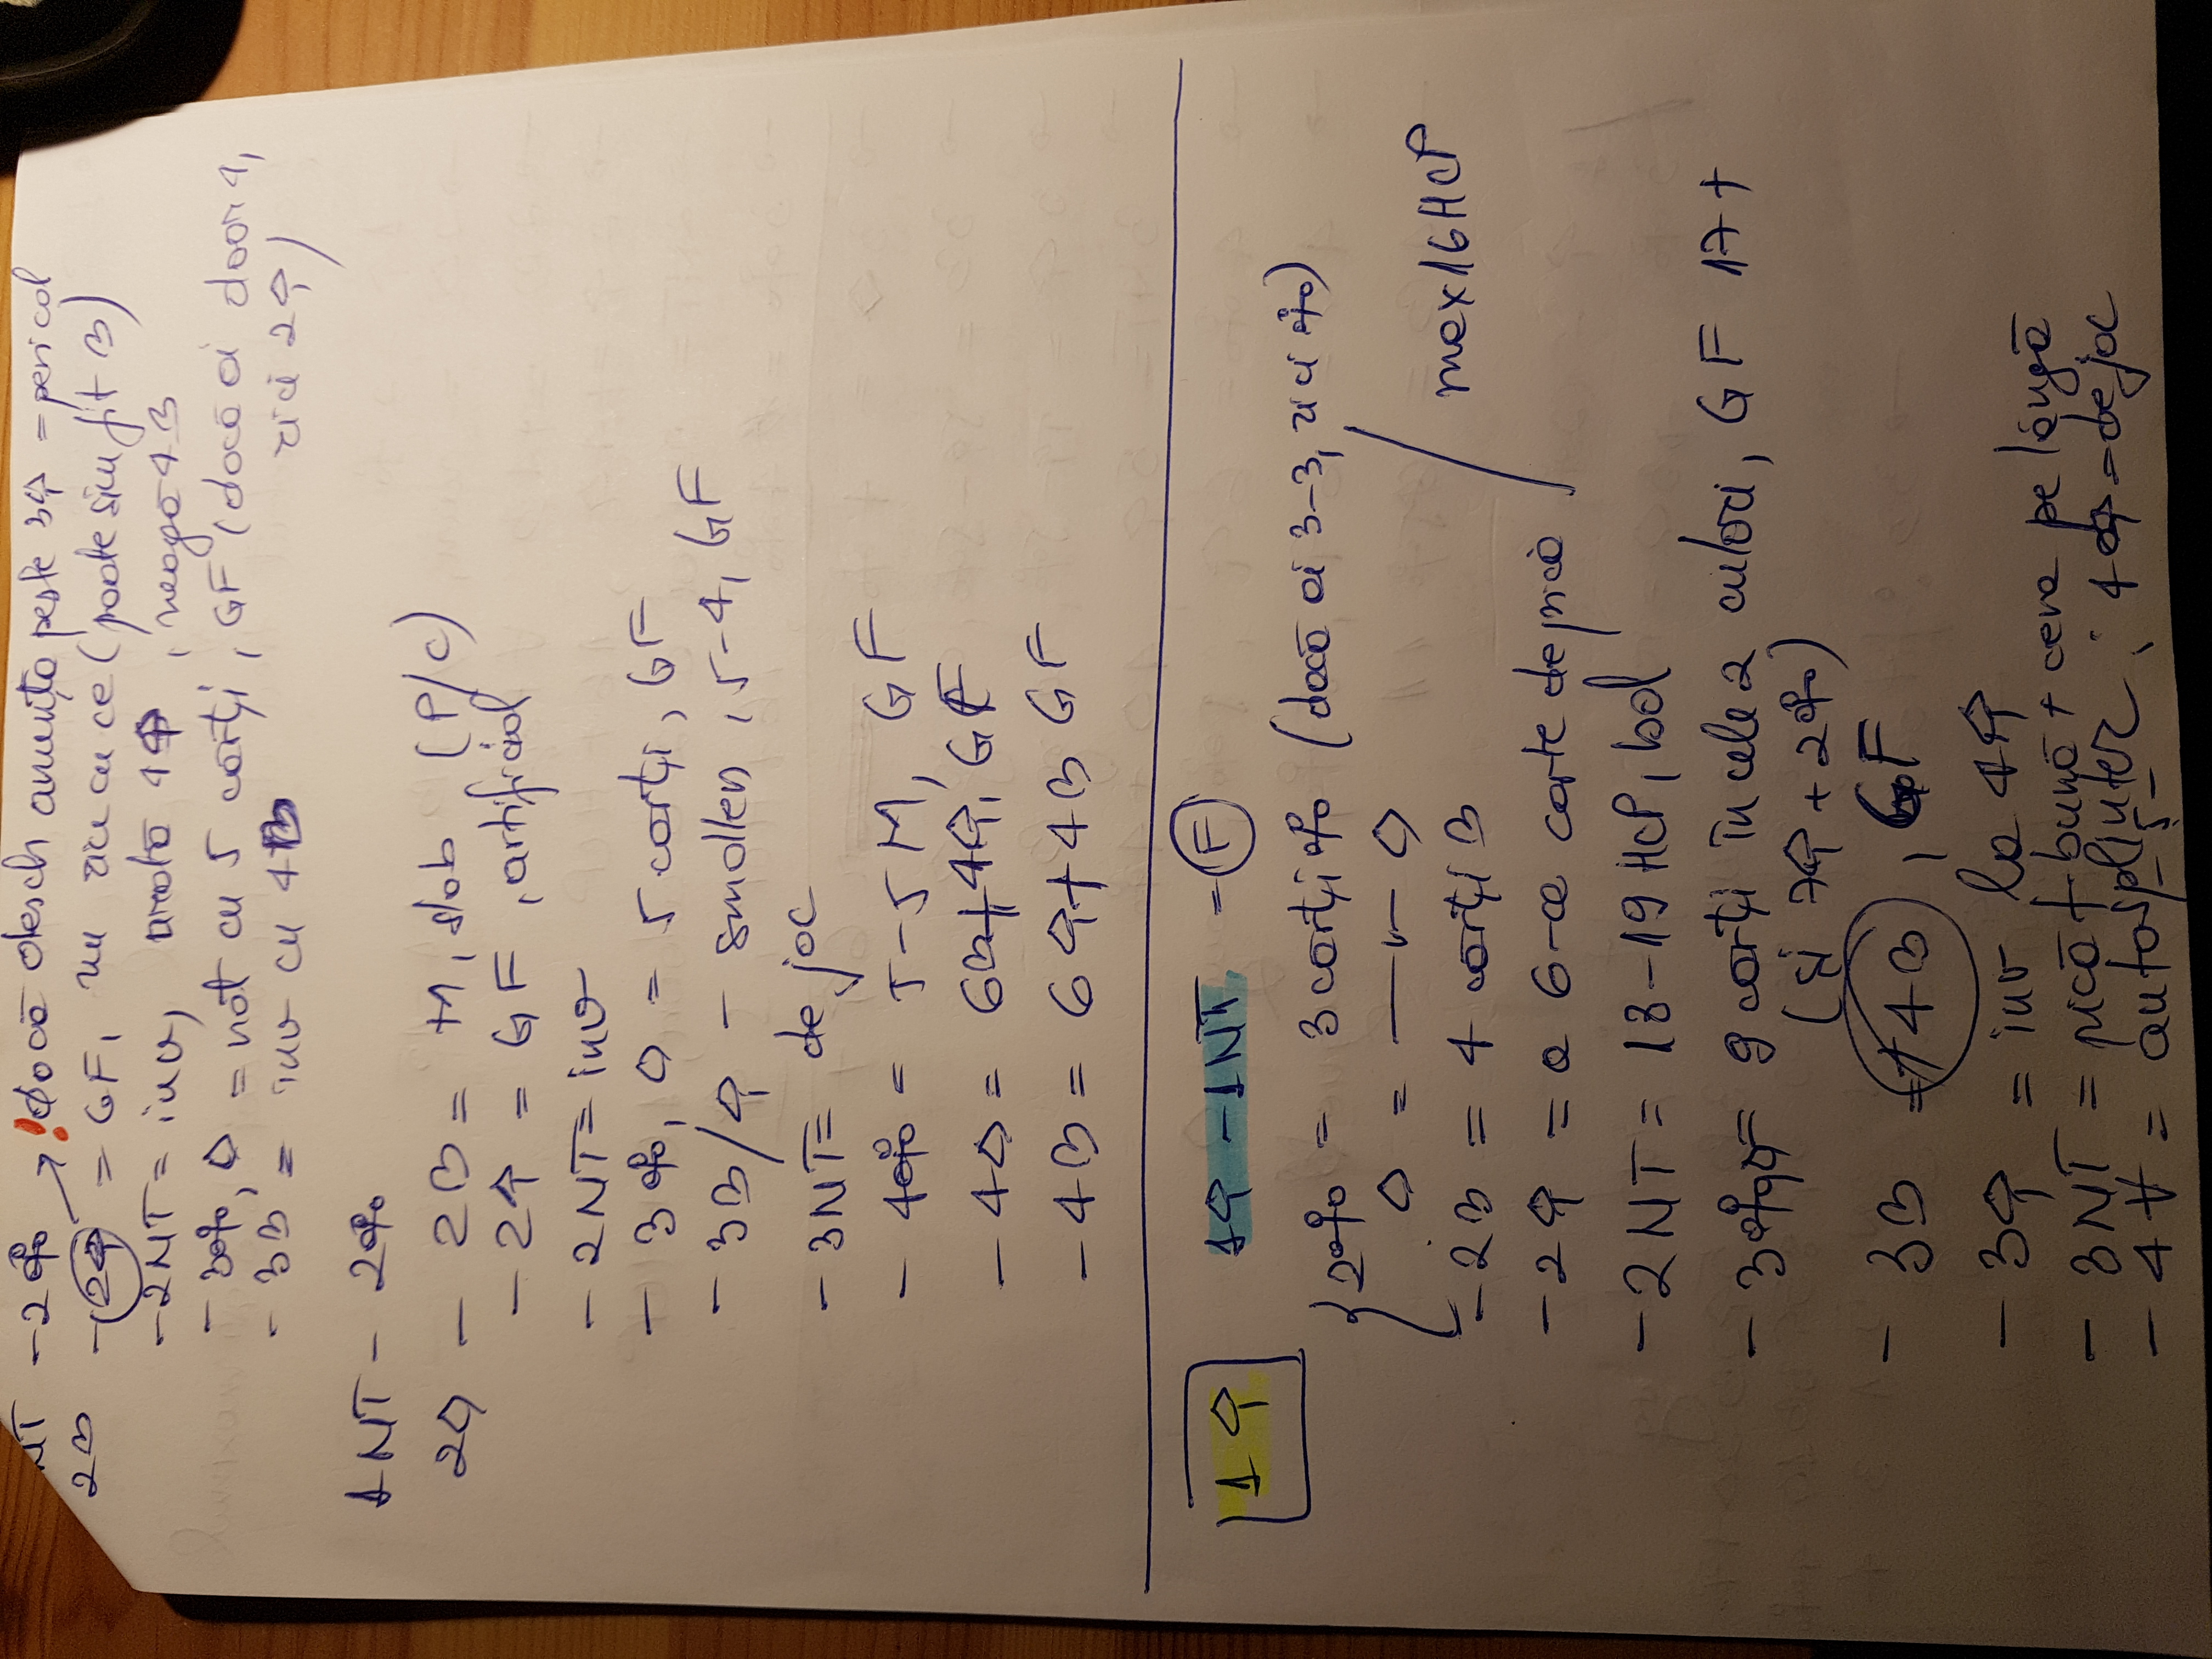 NT - 2♣ → ! dacă desch anunță peste 3♠ = pericol
2♥ - 2♠ = GF, nu zice cu ce (poate sim fit ♥)
- 2NT = inv, arată 4♠, neagă 4♥
- 3♣, ♦ = nat cu 5 cărți, GF (dacă ai doar 4,
- 3♥ = inv cu 4♥ zici 2♠)
1NT - 2♣
2♦ - 2♥ = slab (P/C)
- 2♠ = GF, artificial
- 2NT = inv
- 3♣, ♦ = 5 cărți, GF
- 3♥/♠ - smollen, 5-4, GF
- 3NT = de joc
- 4♣ = 5-5 M, GF
- 4♦ = 6♥+4♠, GF
- 4♥ = 6♠+4♥ GF
1♠ 1♠ - 1NT = F
2♣ = 3 cărți ♣ (dacă ai 3-3, zici ♣)
♦ = —"— ♦
- 2♥ = 4 cărți ♥ max 16 HCP
- 2♠ = a 6-a carte de pică
- 2NT = 18-19 HCP, bal
- 3♣, ♦ = 9 cărți în cele 2 culori, GF 17+
(și 7♠ + 2♣)
- 3♥ = +4♥, GF
- 3♠ = inv la 4♠
- 3NT = pică + bună + ceva pe lângă
- 4 = autosplinter ; 4♠ = de joc
- 5 -